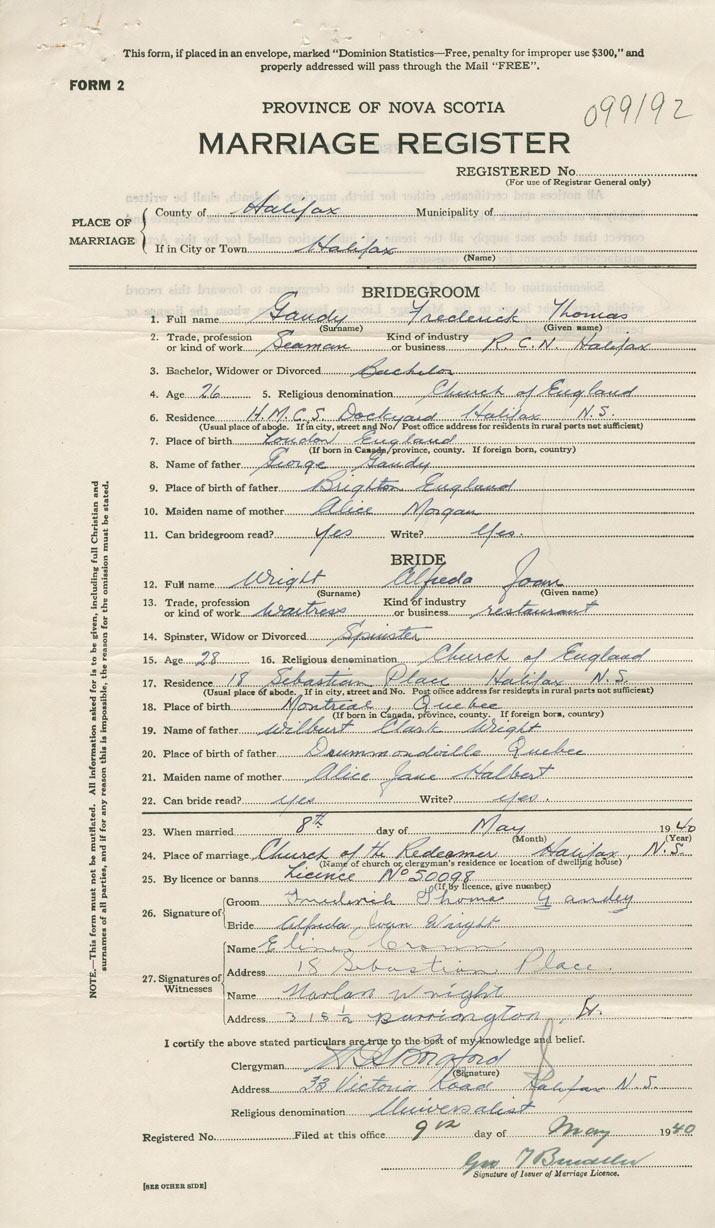 This form, if placed in an envelope, marked "Dominion Statistics—Free, penalty for improper use $300," and
properly addressed will pass through the Mail "FREE".
FORM 2
PROVINCE OF NOVA SCOTIA
099192
MARRIAGE REGISTER
REGISTERED No.
(For use of Registrar General only)
PLACE OF MARRIAGE
County of Halifax Municipality of
If in City or Town Halifax
(Name)
BRIDEGROOM
1. Full name Gaudy Frederick Thomas
(Surname) (Given name)
2. Trade, profession or kind of work Seaman Kind of industry or business R.C.N. Halifax
3. Bachelor, Widower or Divorced Bachelor
4. Age 26 5. Religious denomination Church of England
6. Residence H.M.C.S. Dockyard Halifax N.S.
(Usual place of abode. If in city, street and No. Post office address for residents in rural parts not sufficient)
7. Place of birth London England
(If born in Canada, province, county. If foreign born, country)
8. Name of father George Gaudy
9. Place of birth of father Brighton England
10. Maiden name of mother Alice Morgan
11. Can bridegroom read? Yes Write? Yes.
BRIDE
12. Full name Wright Alfreda Joan
(Surname) (Given name)
13. Trade, profession or kind of work Waitress Kind of industry or business restaurant
14. Spinster, Widow or Divorced Spinster
15. Age 28 16. Religious denomination Church of England
17. Residence 18 Sebastian Place Halifax N.S.
(Usual place of abode. If in city, street and No. Post office address for residents in rural parts not sufficient)
18. Place of birth Montreal, Quebec
(If born in Canada, province, county. If foreign born, country)
19. Name of father Wilburt Clark Wright
20. Place of birth of father Drummondville Quebec
21. Maiden name of mother Alice Jane Halbert
22. Can bride read? yes Write? yes.
23. When married 8th day of May 1940
(Month) (Year)
24. Place of marriage Church of the Redeemer Halifax, N.S.
(Name of church or clergyman's residence or location of dwelling house)
25. By licence or banns Licence No 50098
(If by licence, give number)
26. Signature of
Groom Frederick Thomas Gandey
Bride Alfreda Joan Wright
27. Signatures of Witnesses
Name
Address 18 Sebastian Place.
Name Harlan Wright
Address 318½ Barrington St.
I certify the above stated particulars are true to the best of my knowledge and belief.
Clergyman
(Signature)
Address 33 Victoria Road Halifax N.S.
Religious denomination Universalist
Registered No. Filed at this office 9th day of May 1940
Signature of Issuer of Marriage Licence.
[SEE OTHER SIDE]
NOTE.—This form must not be mutilated. All information asked for is to be given, including full Christian and
surnames of all parties, and if for any reason this is impossible, the reason for the omission must be stated.